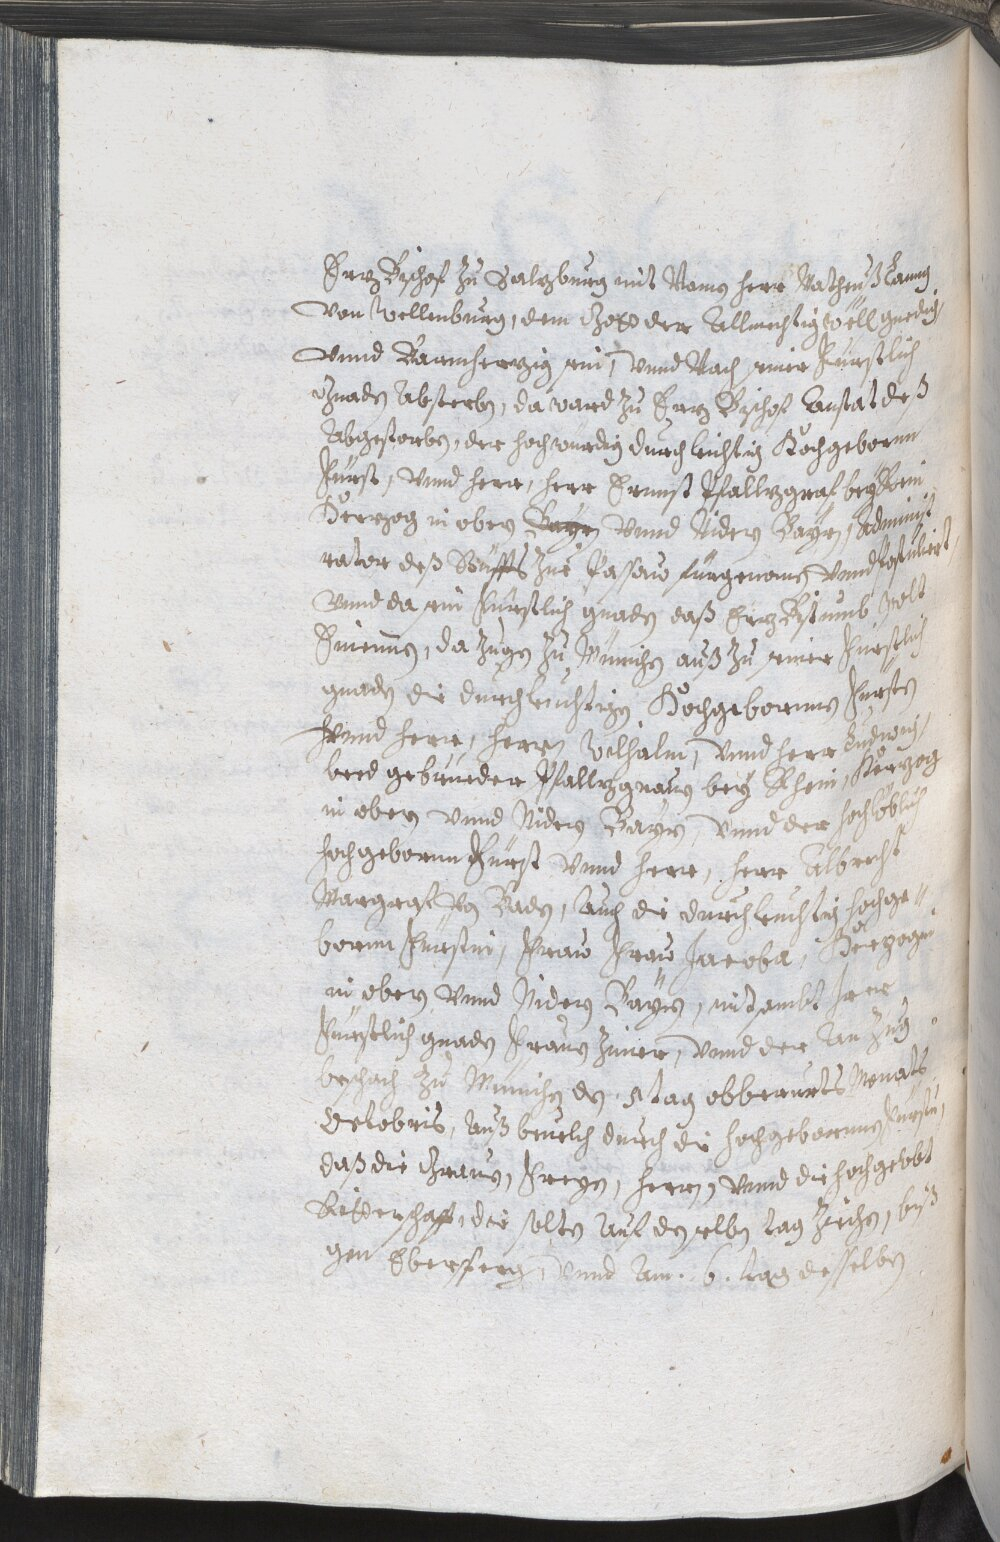 Ertz Bischof Zu Saltzburg mit Namen herr Matheuß Lanng
von Wellenburg, dem Gott der Allmechtig wöll gnedig
vnnd Barmhertzig sein, vnnd Nach seiner Fürstlich
Gnaden Absterben, da ward Zu Ertz Bischof Anstat deß
Abgestorben, der hochwürdig durchleichtig Hochgeborn
Fürst, vnnd herr, herr Ernnst Pfalltzgraf bey Rein
Hertzog in oben Bayrn vnnd Nidern Bayrn, Administ
rator deß Stüffts Zue Passaw fürgenomen vnnd Postuliert,
vnnd da sein Fürstlich gnaden daß Ertz Bistumb wolt
Einemen, da Zugen Zu Münichen auß Zu seiner Fürstlich
gnaden die durchleuchtigen Hochgebornnen Fürsten
vnnd herrn, herrn Wilhalm, vnnd herr Ludwich,
beed gebrueder Pfalltzgrauen bey Rhein, Hertzog
in obern vnnd Nidern Bayrn, vnnd der hochlöblich
hochgebornn Fürst vnnd herr, herr Albrecht
Margraf von Baden, Auch die durchleuchtig hochge„
bornn Fürstin, Fraw Fraw Jacoba, Hertzogin
in obern vnnd Nidern Bayrn, mitsambt Irer
Fürstlich gnaden Frauen Zimer, vnnd der Anzug
beschach Zu Münichen den 5 tag obberürts Monats
Octobris, Auß beuelch durch die hochgebornnen Fürsten,
daß die Grauen, Freyen, herrn, vnnd die hochgelobt
Ritterschafft, die solten Auf denselben tag Ziechen, biß
gen Ebersperg, vnnd Am 6. tag desselben